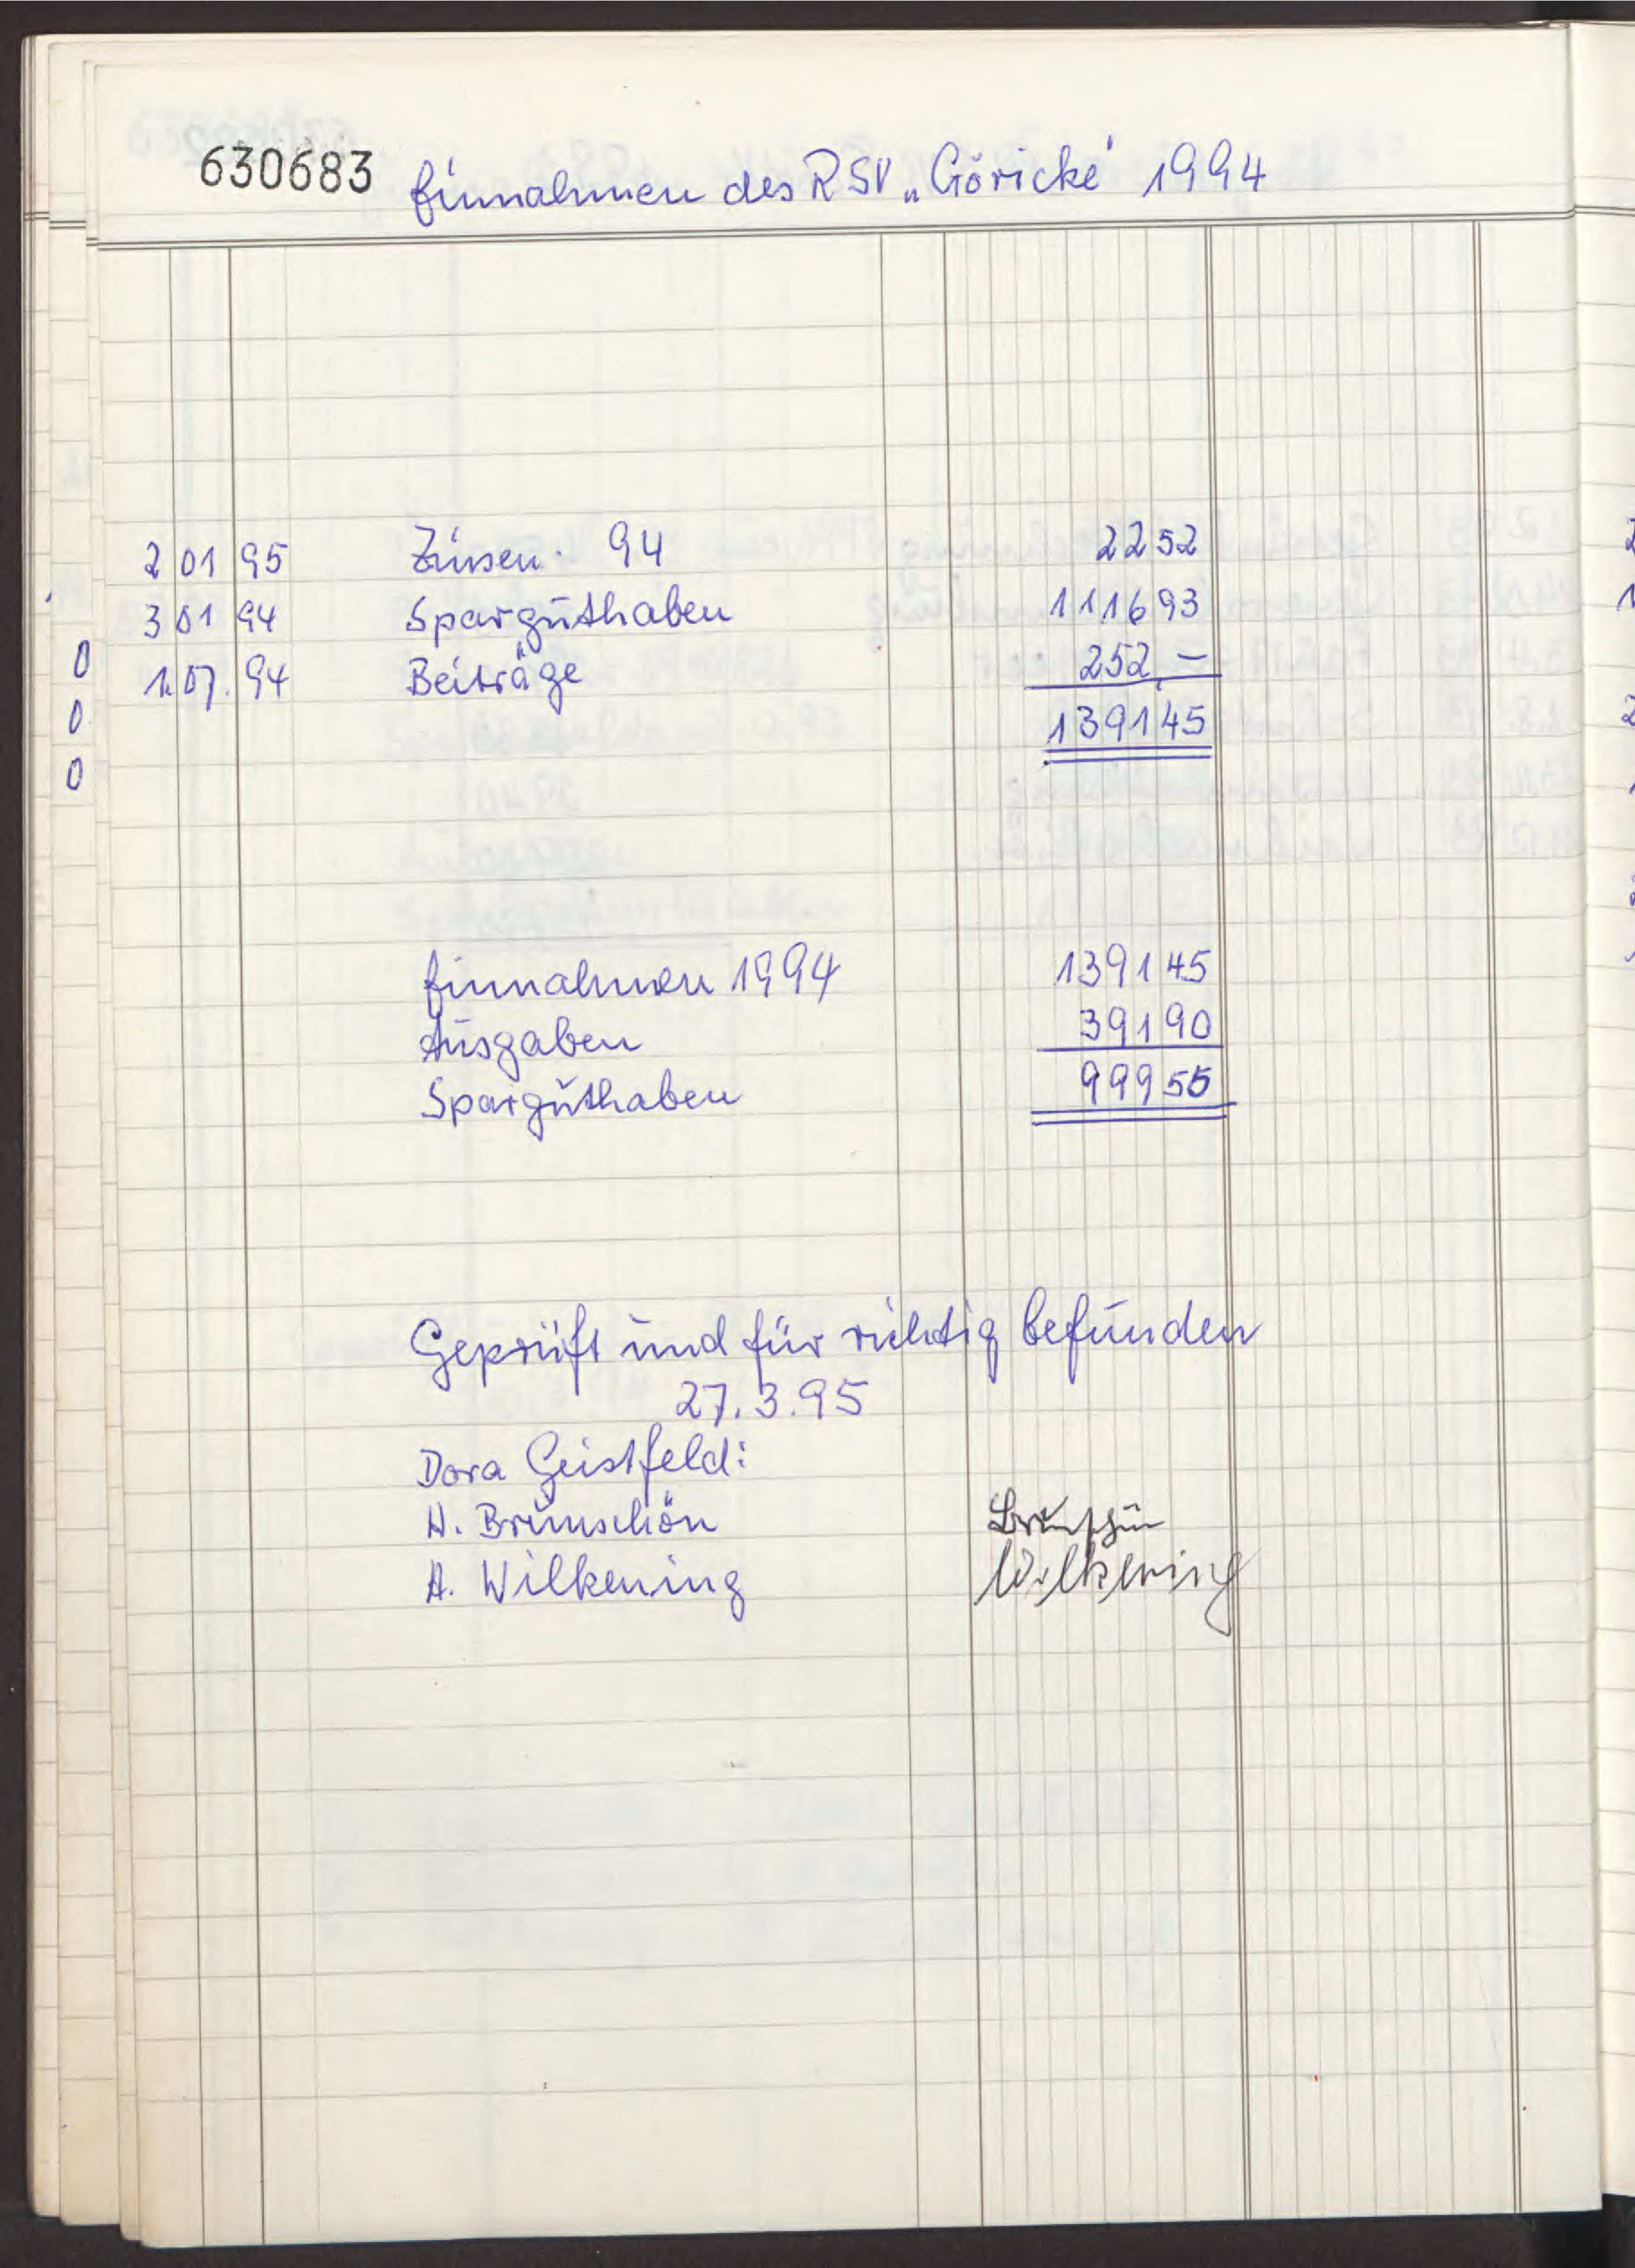 630683 Einnahmen des RSV „Göricke" 1994
2 01 95 Zinsen 94 2252
3 01 94 Sparguthaben 111693
1.07.94 Beiträge 252,—
139145
Einnahmen 1994 139145
Ausgaben 39190
Sparguthaben 99955
Geprüft und für richtig befunden
27.3.95
Dora Geistfeld:
H. Brünschön
A. Wilkening Wilkening